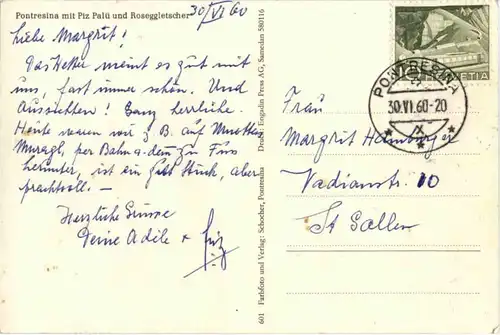 Pontresina mit Piz Palü und Roseggletscher
30/VI 60
Liebe Margrit!
Das Wetter meint es gut mit
uns, fast immer schön. Und
Aussichten! Ganz herrliche.
Heute waren wir z B. auf Muottas
Muragl, per Bahn u. dann zu Fuss
herunter, ist ein gutes Stück, aber
prachtvoll. –
Herzliche Grüsse
Deine Adèle + Fritz
601 Farbfoto und Verlag: Schocher, Pontresina Druck: Engadin Press AG, Samedan 580116
HELVETIA
PONTRESINA
30.VI.60-20
Frau
Margrit
Vadianstr. 10
St Gallen